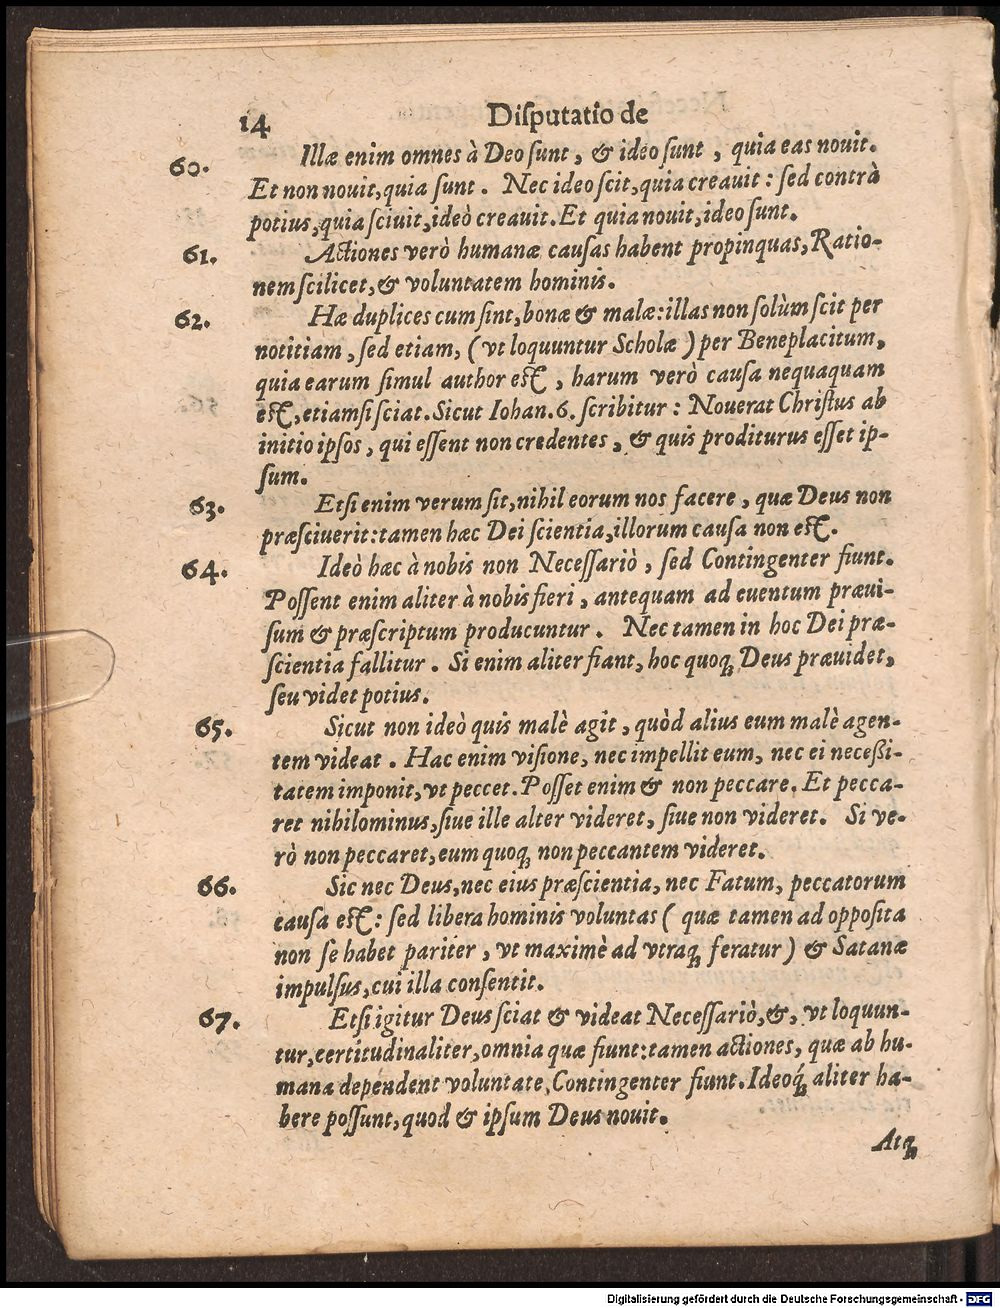 14 Diſputatio de
60. Illæ enim omnes à Deo ſunt, & ideo ſunt, quia eas nouit.
Et non nouit, quia ſunt. Nec ideo ſcit, quia creauit: ſed contrà
potius, quia ſciuit, ideò creauit. Et quia nouit, ideo ſunt.
61. Actiones verò humanæ cauſas habent propinquas, Ratio-
nem ſcilicet, & voluntatem hominis.
62. Hæ duplices cum ſint, bonæ & malæ: illas non ſolùm ſcit per
notitiam, ſed etiam, (vt loquuntur Scholæ) per Beneplacitum,
quia earum ſimul author eſt, harum verò cauſa nequaquam
eſt, etiamſi ſciat. Sicut Iohan. 6. ſcribitur: Nouerat Chriſtus ab
initio ipſos, qui eſſent non credentes, & quis proditurus eſſet ip-
ſum.
63. Etſi enim verum ſit, nihil eorum nos facere, quæ Deus non
præſciuerit: tamen hæc Dei ſcientia, illorum cauſa non eſt.
64. Ideò hæc à nobis non Neceſſariò, ſed Contingenter fiunt.
Poſſent enim aliter à nobis fieri, antequam ad euentum præui-
ſum & præſcriptum producuntur. Nec tamen in hoc Dei præ-
ſcientia fallitur. Si enim aliter fiant, hoc quoq; Deus præuidet,
ſeu videt potius.
65. Sicut non ideò quis malè agit, quòd alius eum malè agen-
tem videat. Hac enim viſione, nec impellit eum, nec ei neceßi-
tatem imponit, vt peccet. Poſſet enim & non peccare. Et pecca-
ret nihilominus, ſiue ille alter videret, ſiue non videret. Si ve-
rò non peccaret, eum quoq; non peccantem videret.
66. Sic nec Deus, nec eius præſcientia, nec Fatum, peccatorum
cauſa eſt: ſed libera hominis voluntas (quæ tamen ad oppoſita
non ſe habet pariter, vt maximè ad vtraq; feratur) & Satanæ
impulſus, cui illa conſentit.
67. Etſi igitur Deus ſciat & videat Neceſſariò, &, vt loquun-
tur, certitudinaliter, omnia quæ fiunt: tamen actiones, quæ ab hu-
mana dependent voluntate, Contingenter fiunt. Ideoq́; aliter ha-
bere poſſunt, quod & ipſum Deus nouit.
Atq;
Digitalisierung gefördert durch die Deutsche Forschungsgemeinschaft - DFG